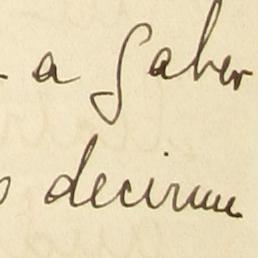 a saber
decirme